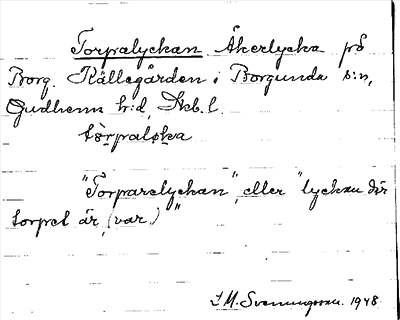 Torpalyckan. Åkerlycka på
Borg. Källegården i Borgunda s:n,
Gudhems h:d, Skb. l.
tòrpalıka
"Torparelyckan", eller "lyckan där
torpet är (var)"
S. M. Svenungsson. 1948